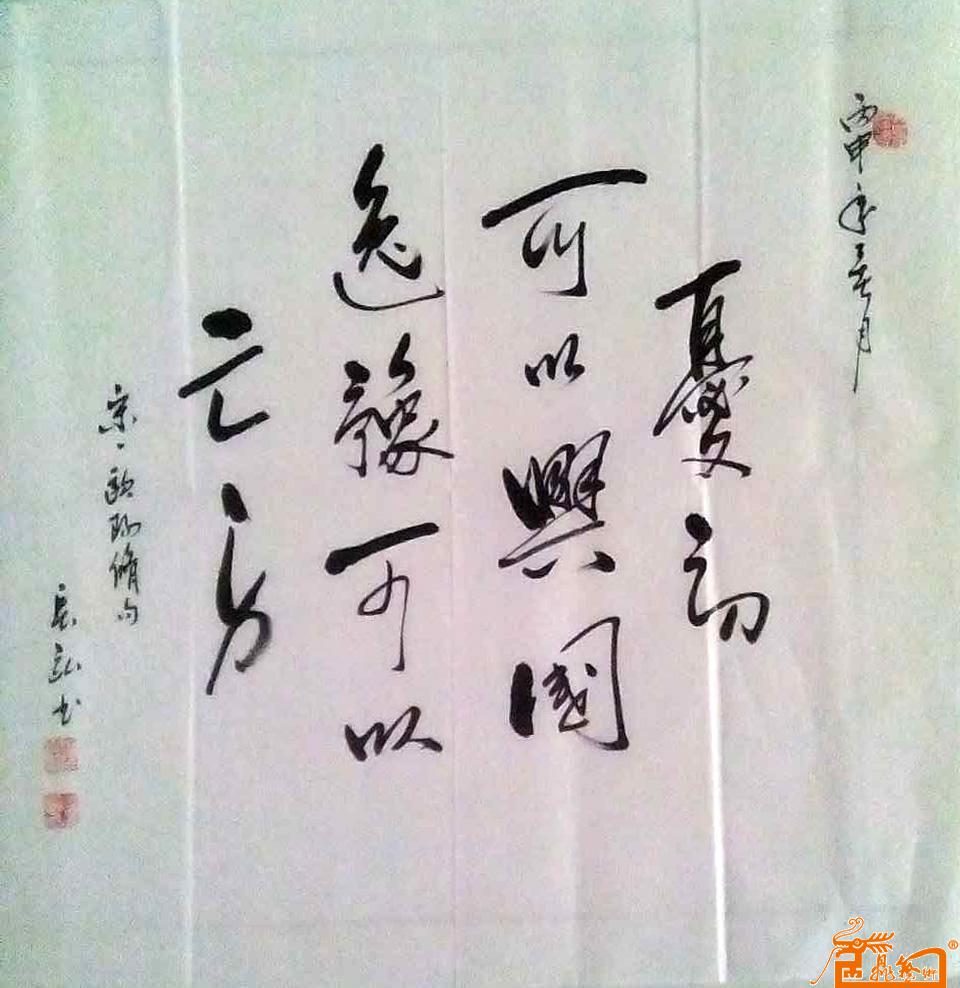 丙申年春月
憂勞
可以興國
逸豫可以
亡身
宋·歐陽脩句
弘书